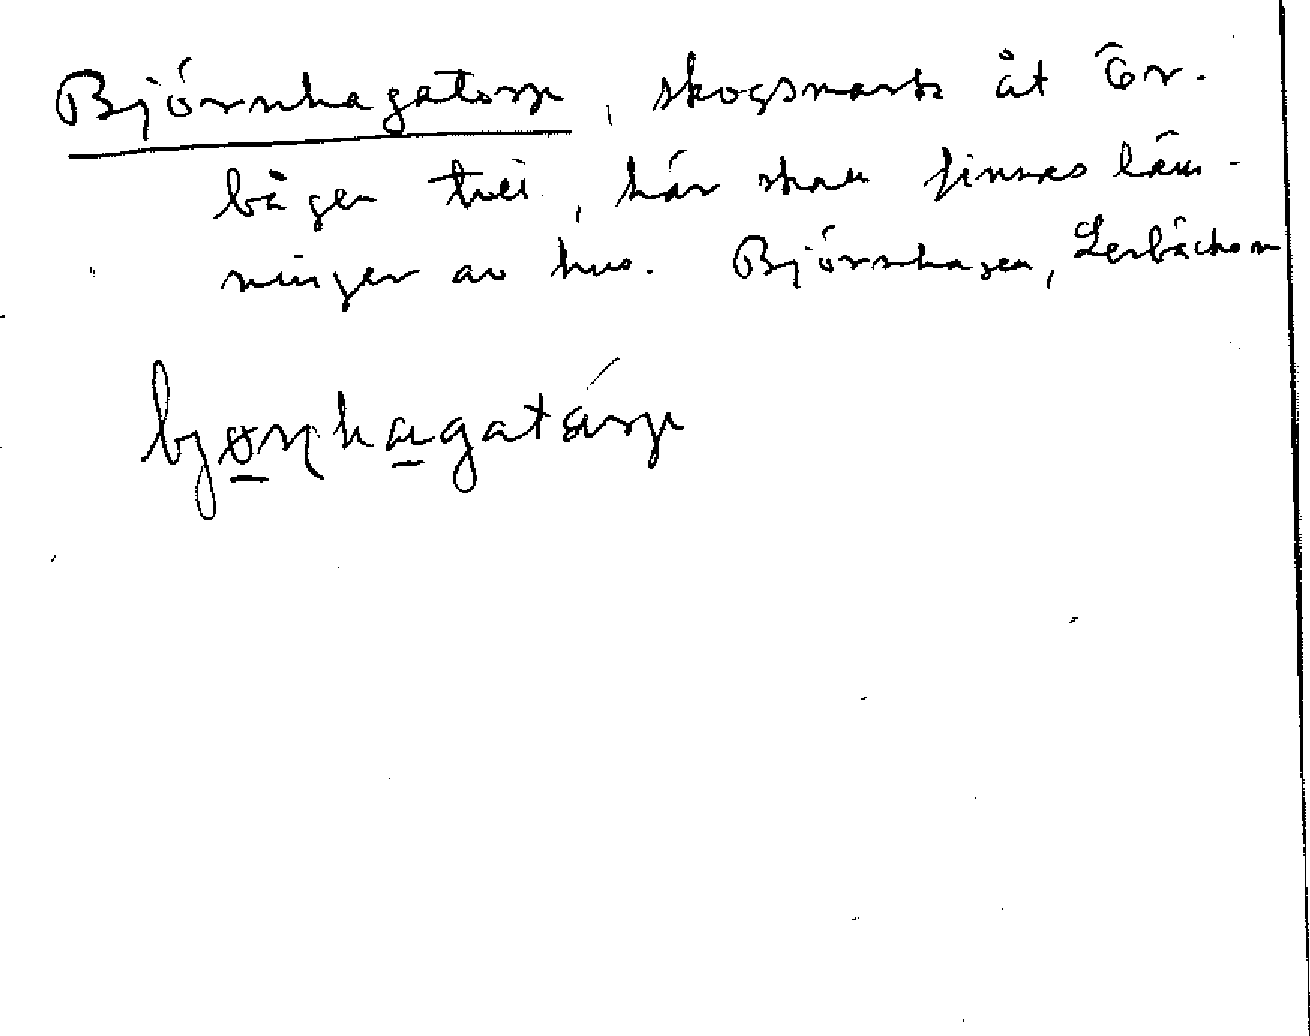 Björnhagatorp, skogsmark åt Ör-
bågen till, här skall finnas läm-
ningar av hus. Björnhagen, Lerbäckom
bjøṇhagatårp